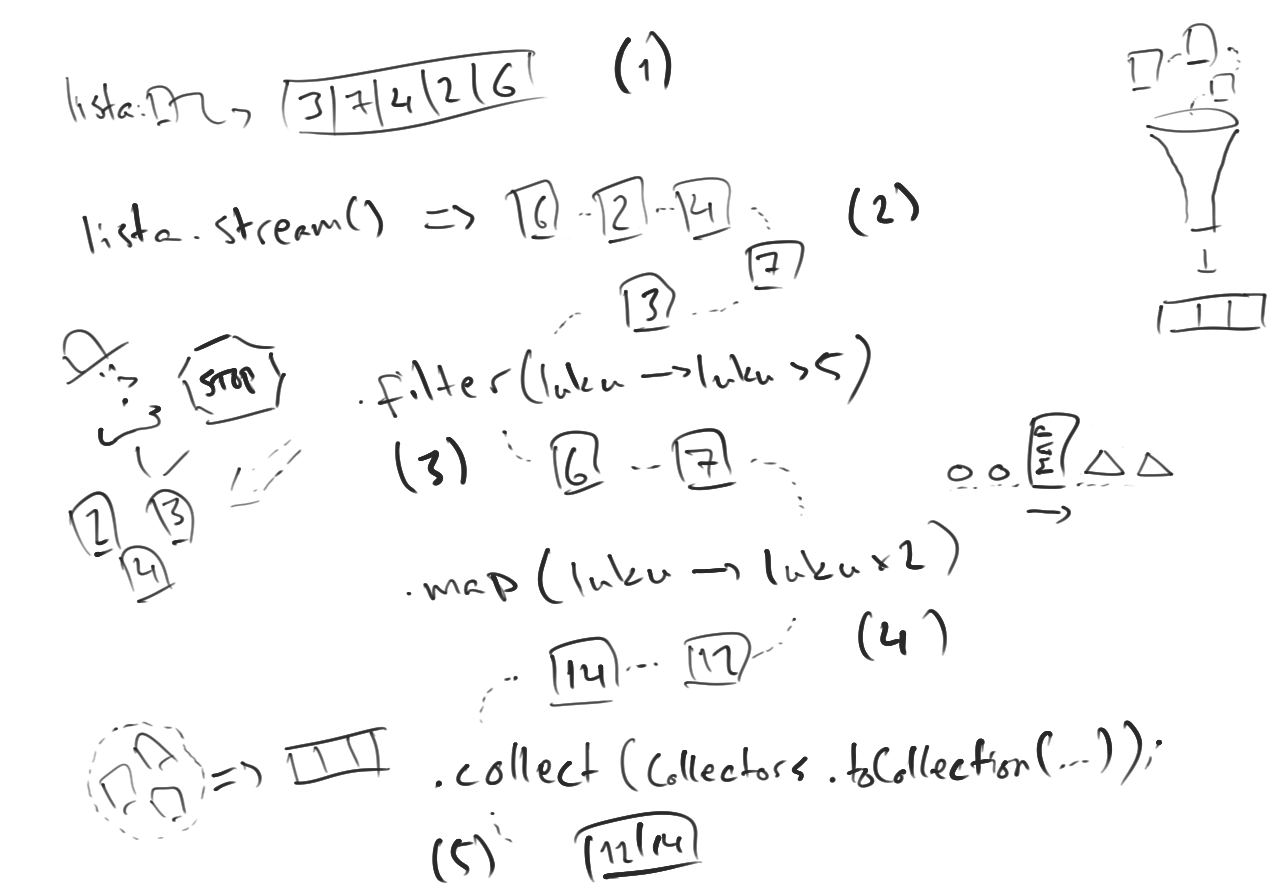 lista: 3 7 4 2 6 (1)
lista.stream() => 6 2 4 (2)
7
3
STOP .filter(luku -> luku > 5)
(3) 6 7
MAP
2 3
4
.map(luku -> luku * 2)
(4)
14 12
=> .collect(Collectors.toCollection(...));
(5) 12 14